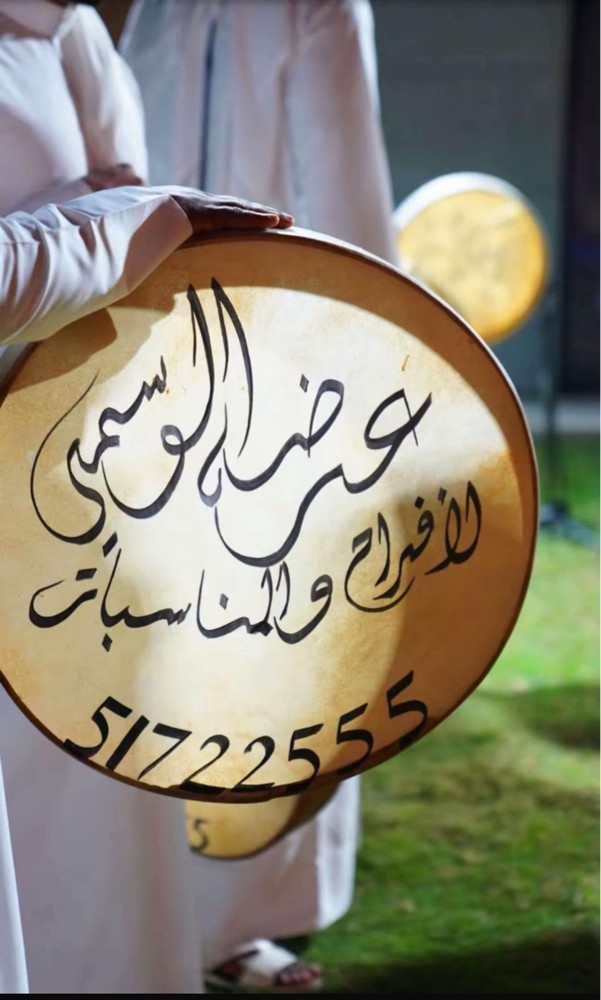 عرضة الوسمي
للأفراح والمناسبات
51722555
5